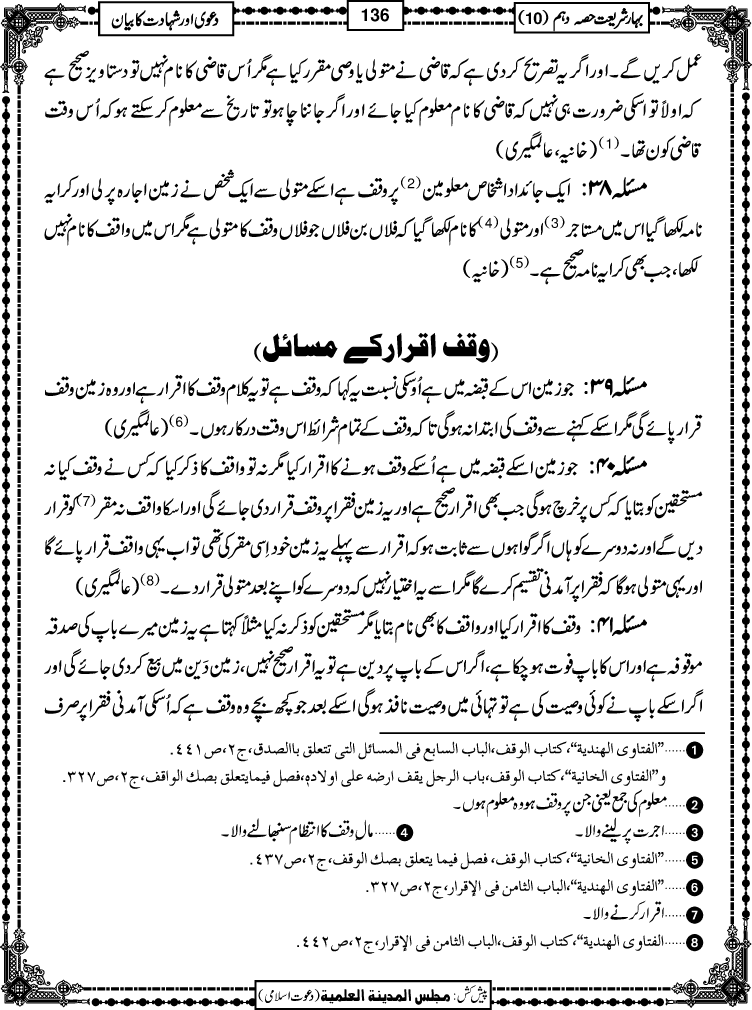 بہارشریعت حصہ دہم (10)
136
دعویٰ اور شہادت کا بیان
عمل کریں گے۔ اور اگر یہ تصریح کردی ہے کہ قاضی نے متولی یا وصی مقرر کیا ہے مگر اُس قاضی کا نام نہیں تو دستاویز صحیح ہے
کہ اولاً تو اسکی ضرورت ہی نہیں کہ قاضی کا نام معلوم کیا جائے اور اگر جاننا چاہو تو تاریخ سے معلوم کرسکتے ہو کہ اُس وقت
قاضی کون تھا۔(1) (خانیہ، عالمگیری)
مسئلہ ۳۸: ایک جائداد اشخاص معلومین(2) پر وقف ہے اسکے متولی سے ایک شخص نے زمین اجارہ پر لی اور کرایہ
نامہ لکھا گیا اس میں مستاجر(3) اور متولی(4) کا نام لکھا گیا کہ فلاں بن فلاں جو فلاں وقف کا متولی ہے مگر اس میں واقف کا نام نہیں
لکھا، جب بھی کرایہ نامہ صحیح ہے۔(5) (خانیہ)
(وقف اقرار کے مسائل)
مسئلہ ۳۹: جو زمین اس کے قبضہ میں ہے اُوسکی نسبت یہ کہا کہ وقف ہے تو یہ کلام وقف کا اقرار ہے اور وہ زمین وقف
قرار پائے گی مگر اسکے کہنے سے وقف کی ابتدا نہ ہوگی تاکہ وقف کے تمام شرائط اس وقت درکار ہوں۔(6) (عالمگیری)
مسئلہ ۴۰: جو زمین اسکے قبضہ میں ہے اُسکے وقف ہونے کا اقرار کیا مگر نہ تو واقف کا ذکر کیا کہ کس نے وقف کیا نہ
مستحقین کو بتایا کہ کس پر خرچ ہوگی جب بھی اقرار صحیح ہے اور یہ زمین فقرا پر وقف قرار دی جائے گی اور اسکا واقف نہ مقر(7) کو قرار
دیں گے اور نہ دوسرے کو ہاں اگر گواہوں سے ثابت ہو کہ اقرار سے پہلے یہ زمین خود اِسی مقر کی تھی تو اب یہی واقف قرار پائے گا
اور یہی متولی ہوگا کہ فقرا پر آمدنی تقسیم کرے گا مگر اسے یہ اختیار نہیں کہ دوسرے کو اپنے بعد متولی قرار دے۔(8) (عالمگیری)
مسئلہ ۴۱: وقف کا اقرار کیا اور واقف کا بھی نام بتایا مگر مستحقین کو ذکر نہ کیا مثلاً کہتا ہے یہ زمین میرے باپ کی صدقہ
موقوفہ ہے اور اس کا باپ فوت ہوچکا ہے، اگر اس کے باپ پر دین ہے تو یہ اقرار صحیح نہیں، زمین دَین میں بیع کردی جائے گی اور
اگر اسکے باپ نے کوئی وصیت کی ہے تو تہائی میں وصیت نافذ ہوگی اسکے بعد جو کچھ بچے وہ وقف ہے کہ اُسکی آمدنی فقرا پر صرف
1......"الفتاوی الهندية"، كتاب الوقف، الباب السابع فى المسائل التى تتعلق باالصدق، ج٢، ص٤٤١.
و "الفتاوى الخانية"، كتاب الوقف، باب الرجل يقف ارضه على اولاده، فصل فيمايتعلق بصك الواقف، ج٢، ص٣٢٧.
2......معلوم کی جمع یعنی جن پر وقف ہو وہ معلوم ہوں۔
3......اجرت پر لینے والا۔ 4......مال وقف کا انتظام سنبھالنے والا۔
5......"الفتاوى الخانية"، كتاب الوقف، فصل فيما يتعلق بصك الوقف، ج٢، ص٤٣٧.
6......"الفتاوى الهندية"، الباب الثامن فى الإقرار، ج٢، ص٣٢٧.
7......اقرار کرنے والا۔
8......الفتاوى الهندية"، كتاب الوقف، الباب الثامن فى الإقرار، ج٢، ص٤٤٢.
پیش کش: مجلس المدينة العلمية (دعوت اسلامی)